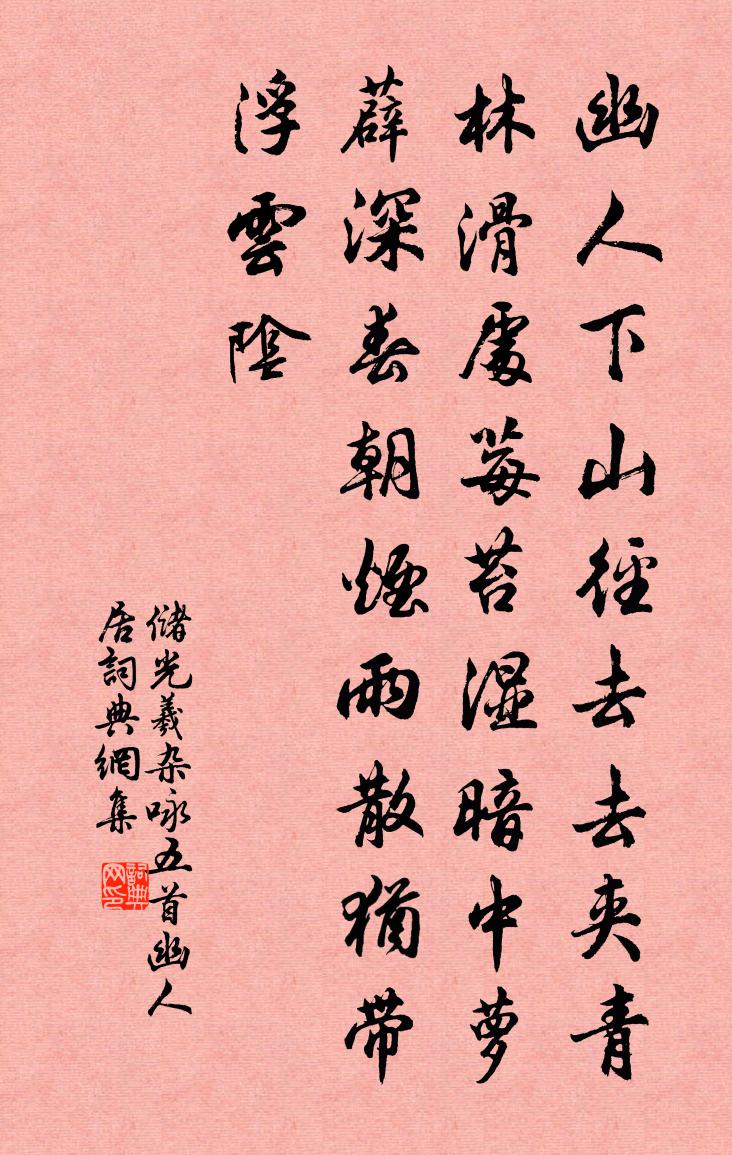 幽人下山徑去去夾青
林滑處莓苔濕暗中蘿
薜深春朝煙雨散猶帶
浮雲陰
儲光羲杂咏五首幽人
居詞典網集
詞典
网印